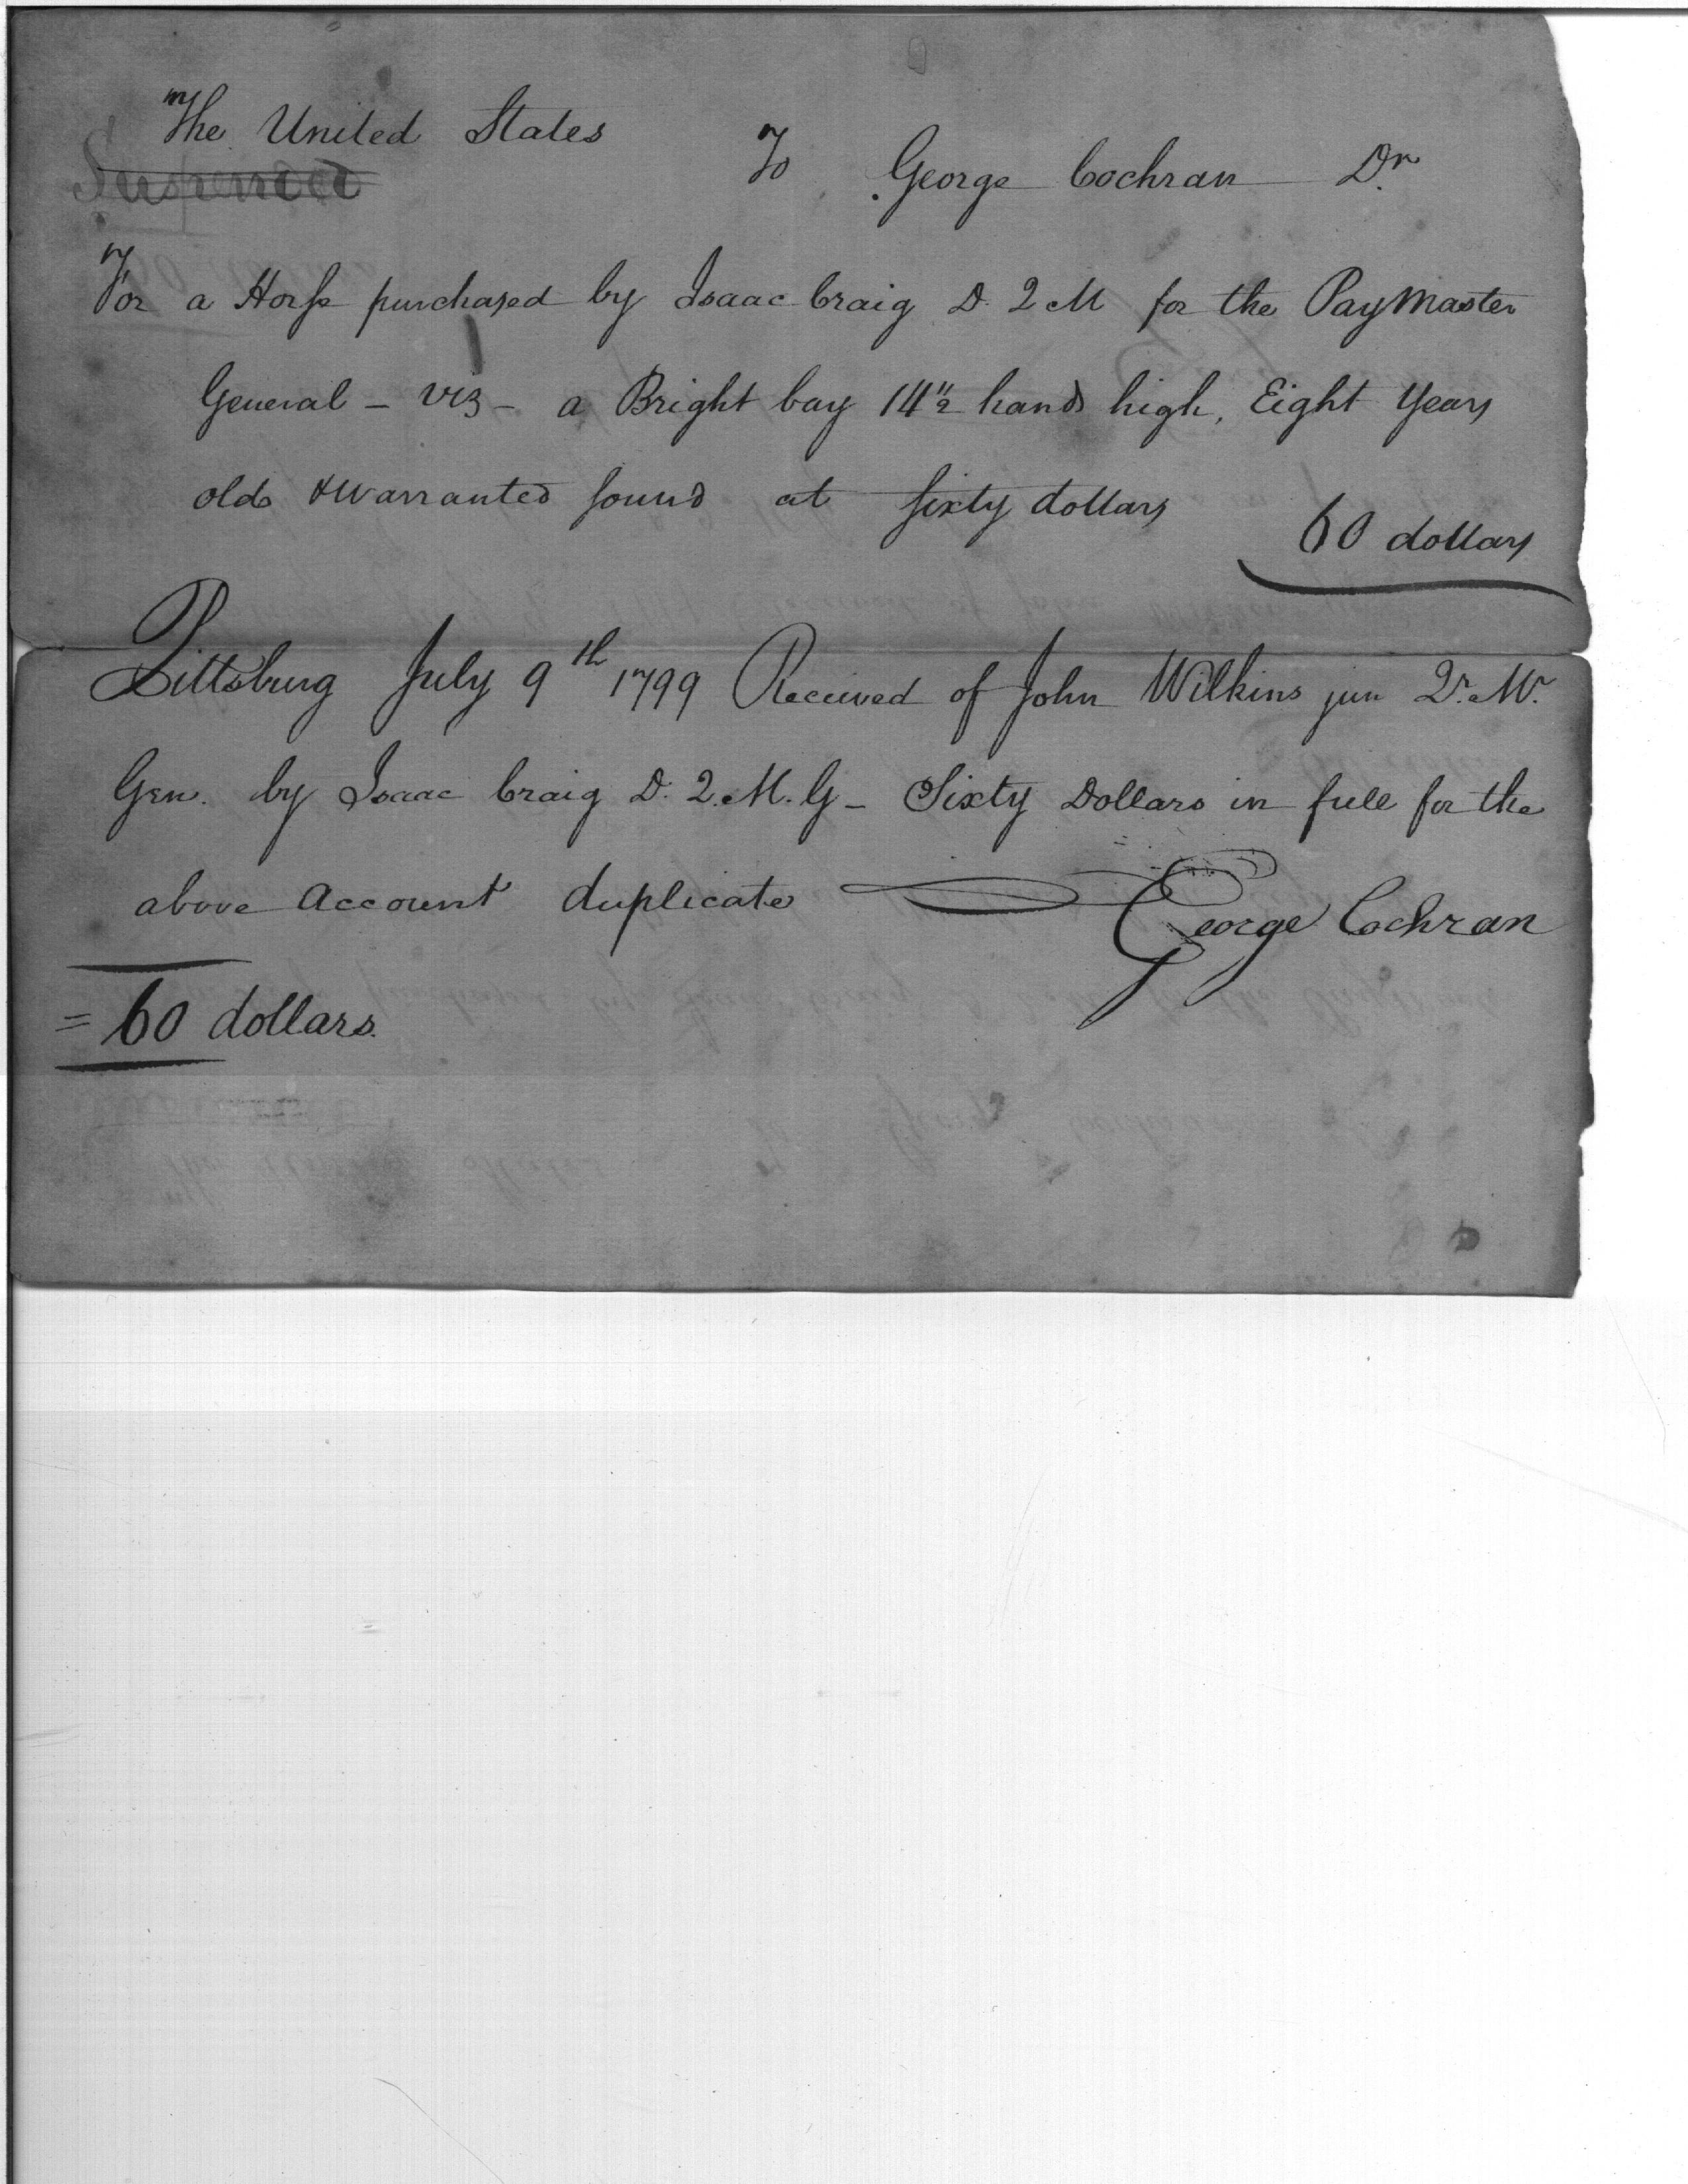 The United States To George Cochran Dr
Suspended
For a Horse purchased by Isaac Craig D. Q M for the PayMaster
General – viz – a Bright bay 14 1/2 hands high, Eight Years
old & Warranted sound at sixty dollars
60 dollars
Pittsburg July 9th 1799 Received of John Wilkins jun Qr. Mr.
Gen. by Isaac Craig D. Q. M. G – Sixty Dollars in full for the
above account duplicate
George Cochran
= 60 dollars.